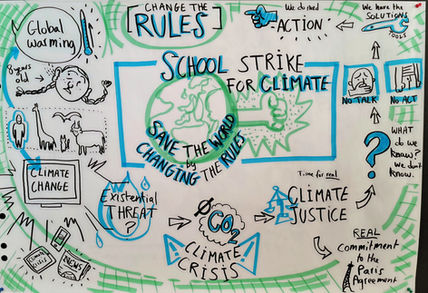 CHANGE THE
RULES
We do need
ACTION
We have the
SOLUTIONS
TOOLS
Global
Warming
8 years
old
SCHOOL STRIKE
FOR CLIMATE
SAVE THE WORLD
by
CHANGING THE RULES
NO TALK
NO ACT
WHAT
do we
know?
We don't
know.
?
CLIMATE
CHANGE
Existential
THREAT
?
CLIMATE
CRISIS
NEWS
CO2
CLIMATE
CRISIS
Time for real
CLIMATE
JUSTICE
REAL
Commitment
to the
Paris
Agreement